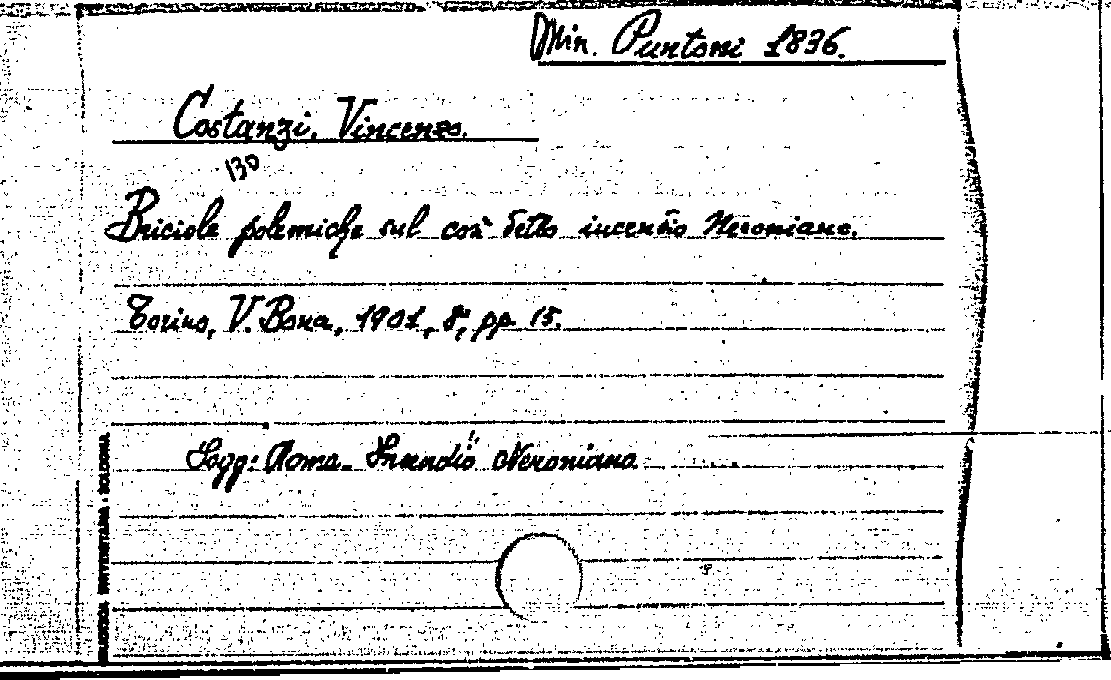 Min. Puntoni 1836.
Costanzi, Vincenzo.
130
Briciole polemiche sul così detto incendio Neroniano.
Torino, V. Bona, 1901, 8°, pp. 15.
Sogg: Roma - Incendio Neroniano